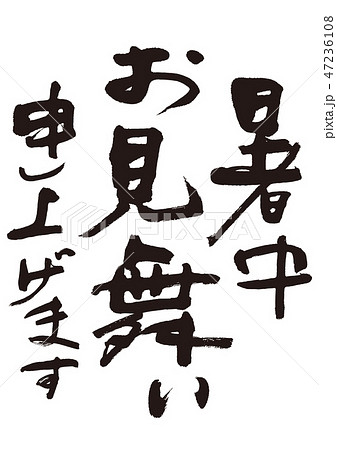 暑中
お見舞い
申し上げます
PIXTA
pixta.jp - 47236108